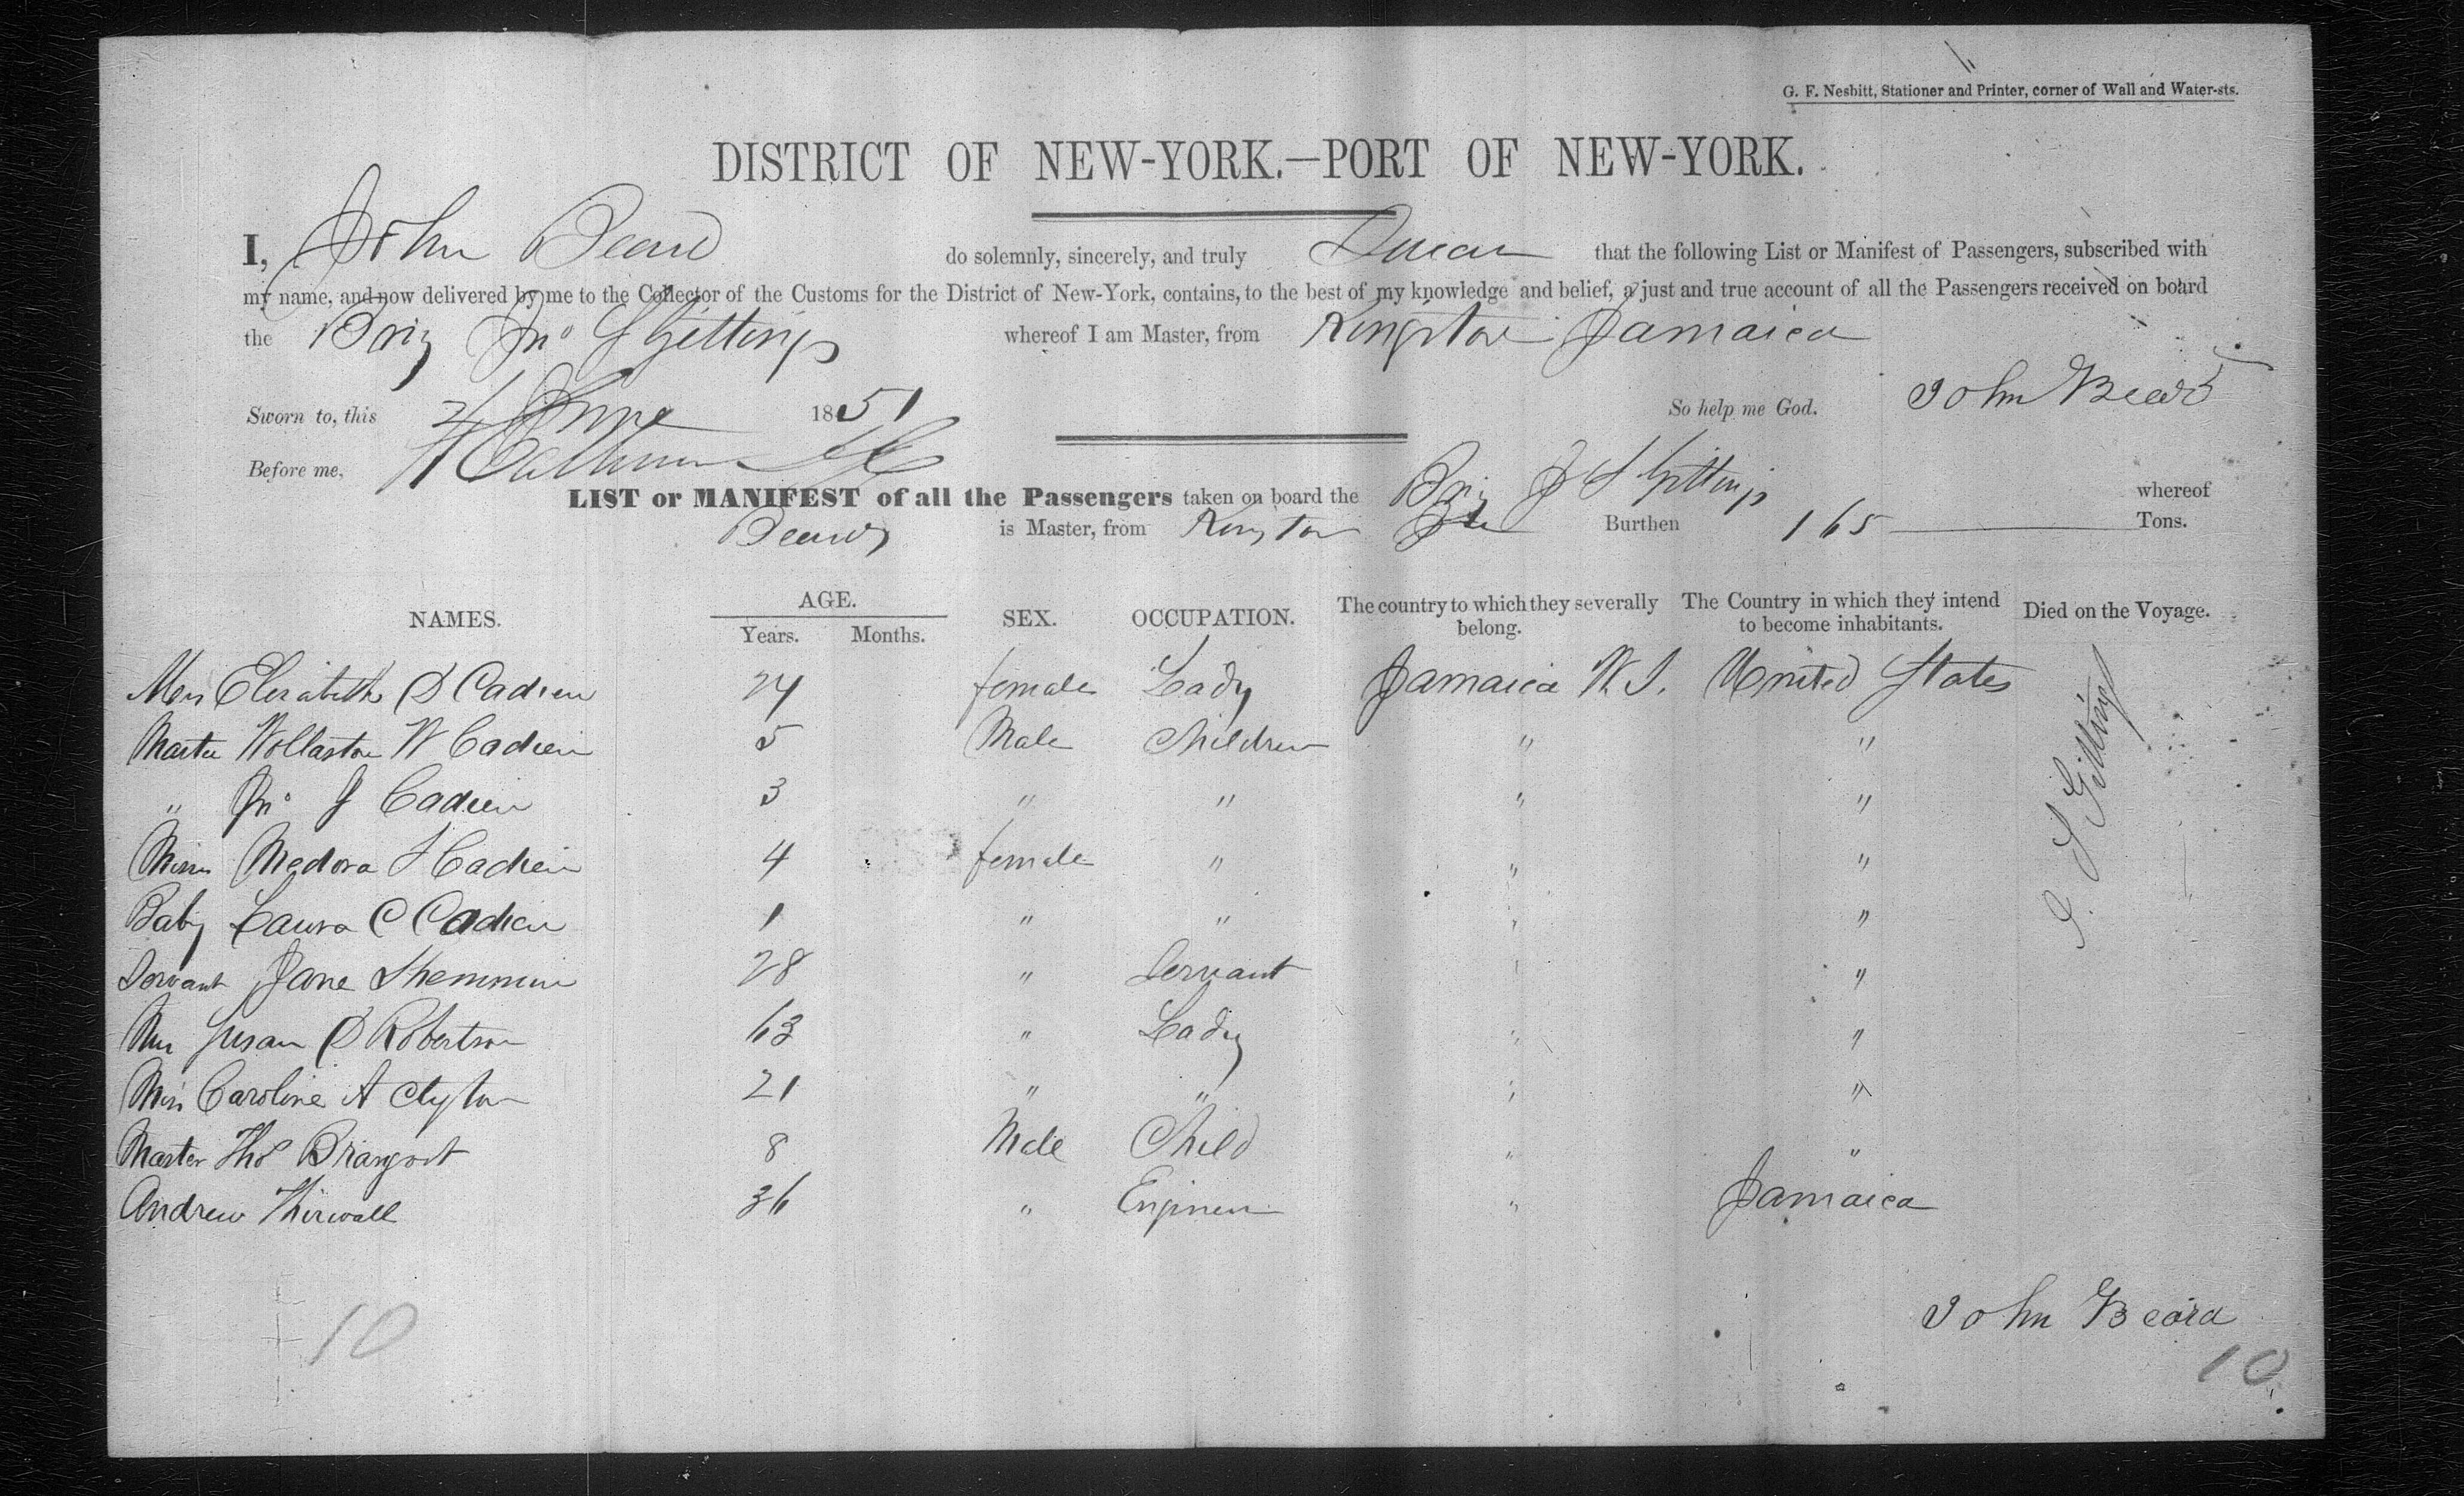 G. F. Nesbitt, Stationer and Printer, corner of Wall and Water-sts.
DISTRICT OF NEW-YORK.—PORT OF NEW-YORK.
I, John Beard do solemnly, sincerely, and truly Swear that the following List or Manifest of Passengers, subscribed with
my name, and now delivered by me to the Collector of the Customs for the District of New-York, contains, to the best of my knowledge and belief, a just and true account of all the Passengers received on board
the Brig Jno S Gittings whereof I am Master, from Kingston Jamaica
Sworn to, this June 1851 So help me God. John Beard
Before me,
LIST or MANIFEST of all the Passengers taken on board the Brig J S Gittings whereof
Beard is Master, from Kingston Ja Burthen 165 Tons.
NAMES. AGE. Years. Months. SEX. OCCUPATION. The country to which they severally belong. The Country in which they intend to become inhabitants. Died on the Voyage.
Mrs Elizabeth D Cadien 24 female Lady Jamaica W. I. United States
Master Wollaston W Cadien 5 Male Children " "
" Jno J Cadien 3 " " " "
Miss Medora S Cadien 4 female " " "
Baby Laura C Cadien 1 " " " "
Servant Jane 28 " Servant " "
Mrs Susan D Robertson 63 " Lady " "
Miss Caroline A Clyton 21 " " " "
Master Thos 8 Male Child " "
Andrew Thirwall 36 " Engineer " Jamaica
J. S Gittings
John Beard
10
10